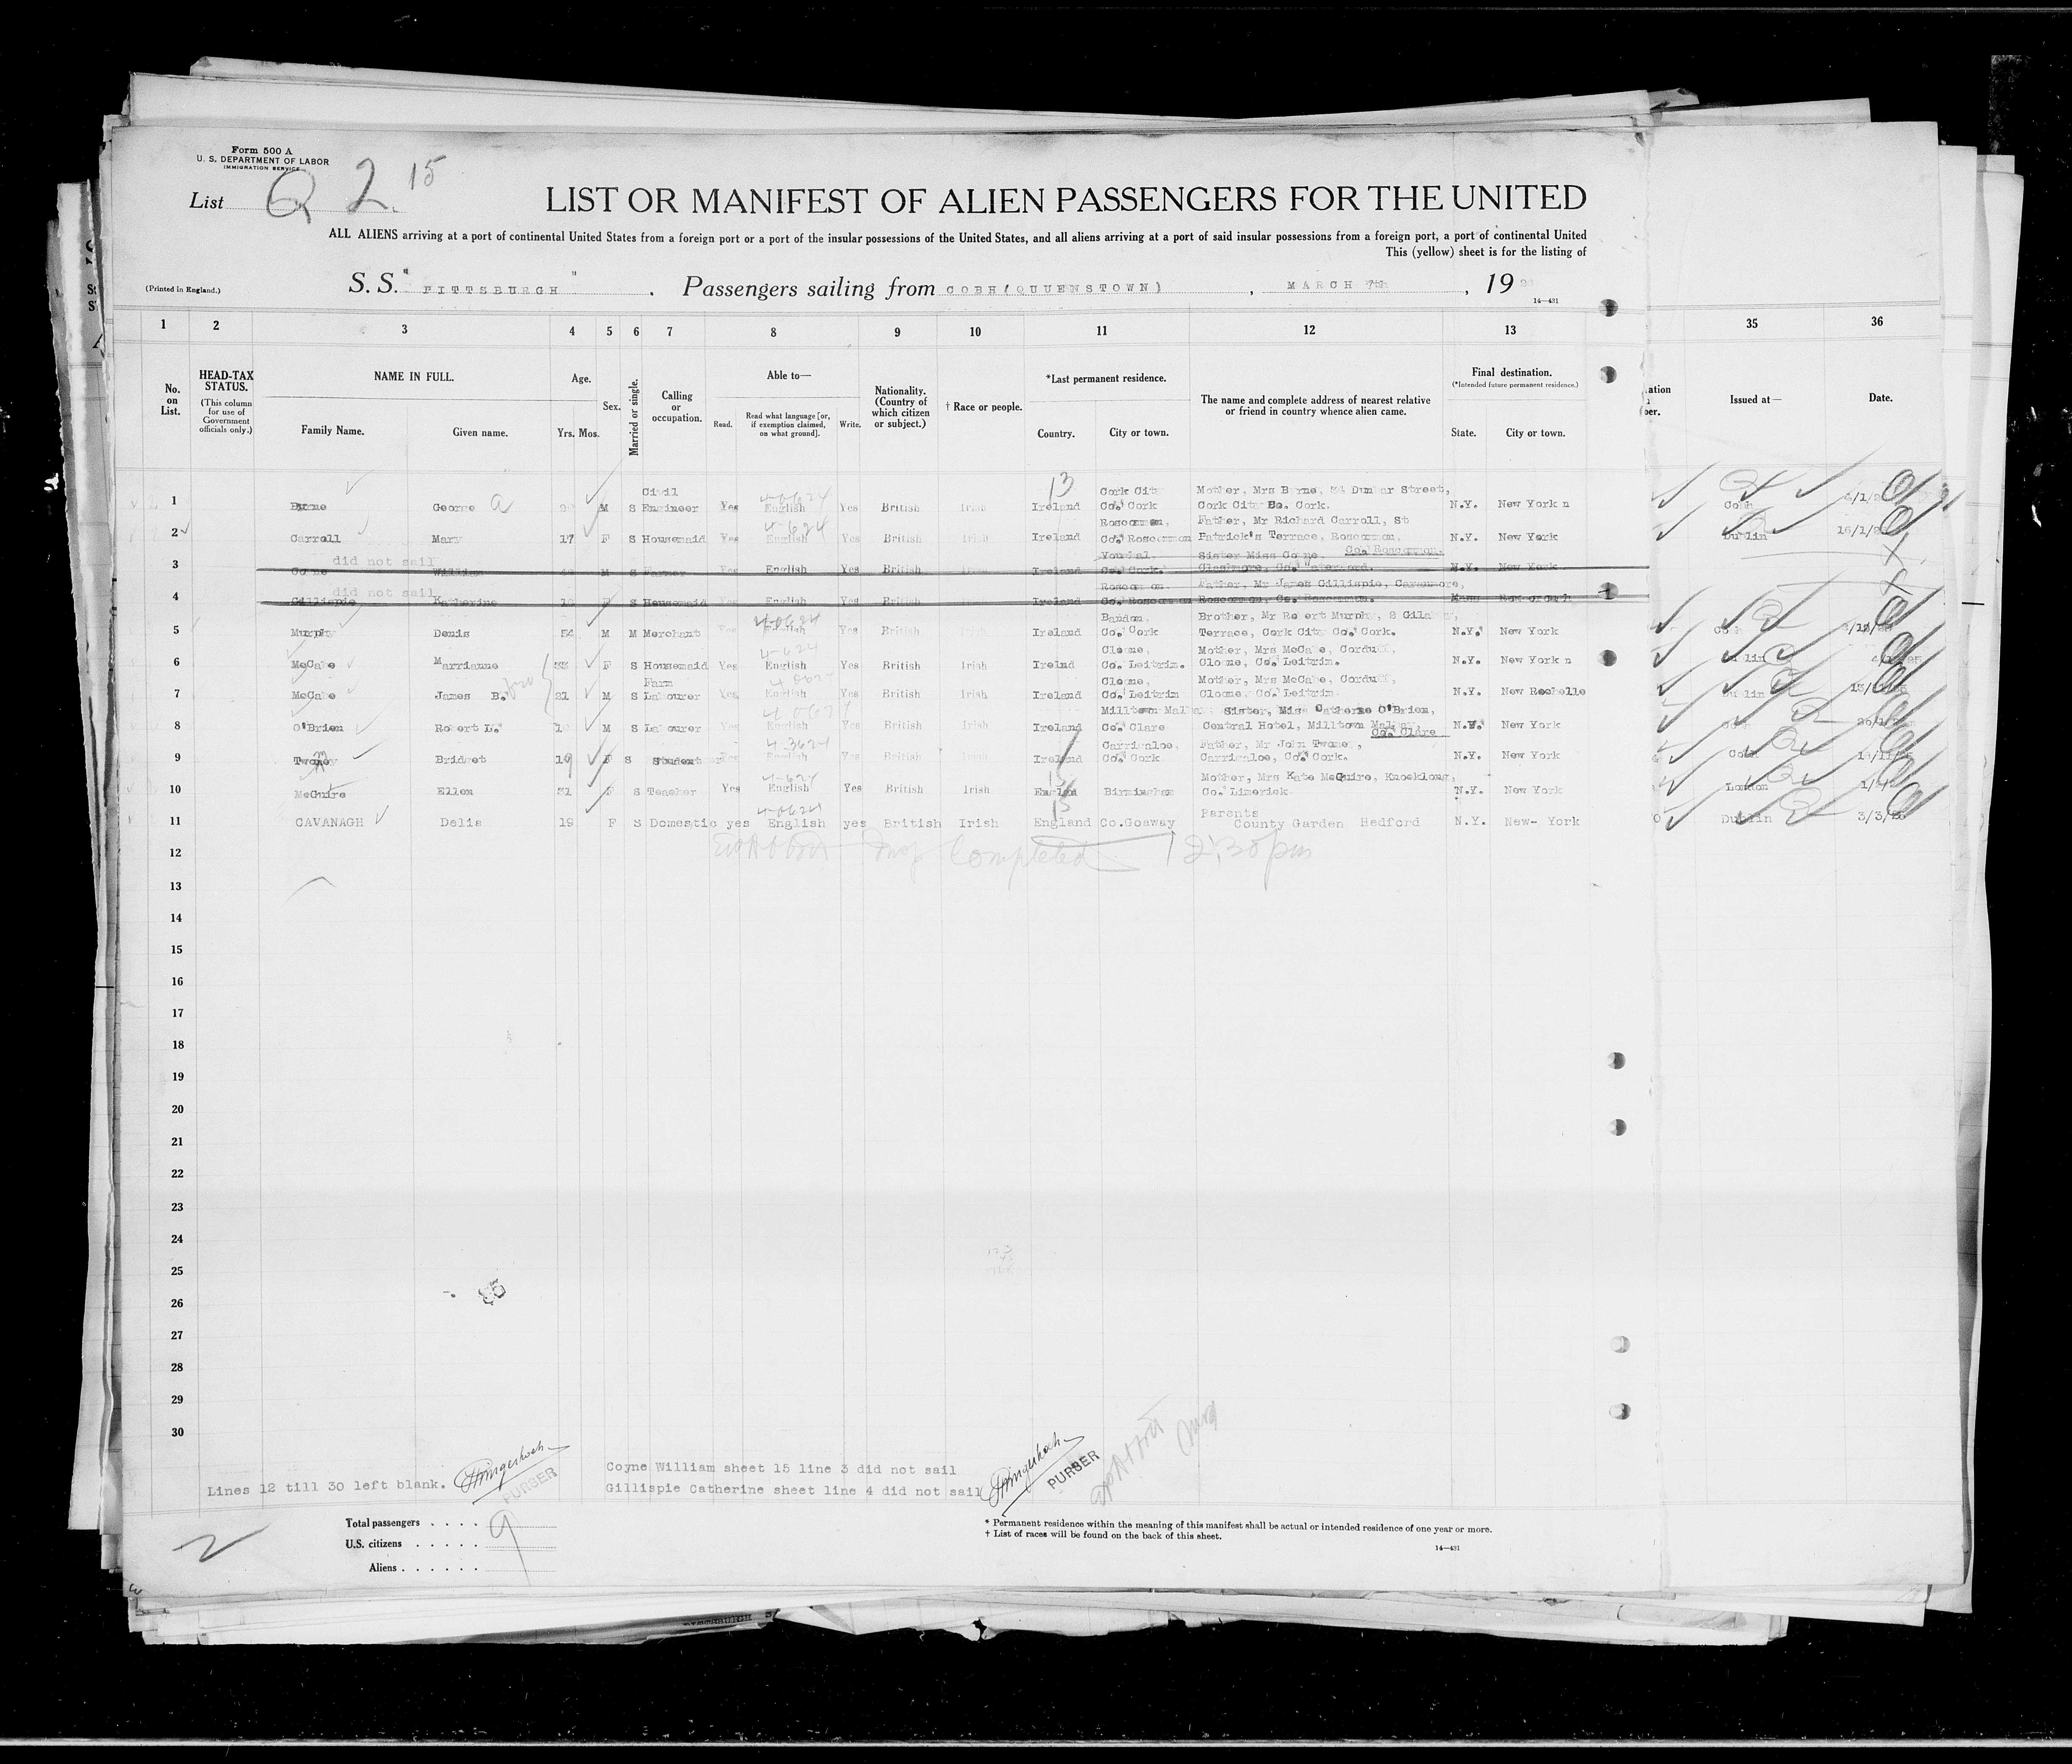 Form 500 A
U. S. DEPARTMENT OF LABOR
IMMIGRATION SERVICE
List Q 2. 15
LIST OR MANIFEST OF ALIEN PASSENGERS FOR THE UNITED
ALL ALIENS arriving at a port of continental United States from a foreign port or a port of the insular possessions of the United States, and all aliens arriving at a port of said insular possessions from a foreign port, a port of continental United
This (yellow) sheet is for the listing of
(Printed in England.) S. S. "PITTSBURGH" . Passengers sailing from COBH(QUUENSTOWN) , MARCH 7th , 19
14—431
1 2 3 4 5 6 7 8 9 10 11 12 13 35 36
No. on List. HEAD-TAX STATUS. (This column for use of Government officials only.) NAME IN FULL. Family Name. Given name. Age. Yrs. Mos. Sex. Married or single. Calling or occupation. Able to— Read. Read what language [or, if exemption claimed, on what ground]. Write. Nationality. (Country of which citizen or subject.) † Race or people. *Last permanent residence. Country. City or town. The name and complete address of nearest relative or friend in country whence alien came. Final destination. (*Intended future permanent residence.) State. City or town. Issued at— Date.
Civil Cork City Mother, Mrs Byrne, 34 Dunbar Street,
1 Byrne George a M S Engineer Yes English Yes British Irish Ireland Co. Cork Cork City Co. Cork. N.Y. New York n Cobh
Roscommon, Father, Mr Richard Carroll, St
2 Carroll Mary 17 F S Housemaid Yes English Yes British Irish Ireland Co. Roscommon Patrick's Terrace, Roscommon, Co. Roscommon. N.Y. New York Dublin
did not sail Youghal Sister Miss Coyne
3 Coyne William S Farmer English Yes British Ireland Co. Cork. Clashmore, Co. Waterford. N.Y. New York
did not sail Roscommon Father, Mr James Gillispie,
4 Gillispie Katherine F S Housemaid English Yes British Ireland Co. Roscommon Roscommon, Co. Roscommon.
Bandon, Brother, Mr Robert Murphy, 2
5 Murphy Denis 54 M M Merchant Yes English Yes British Irish Ireland Co. Cork Terrace, Cork City Co. Cork. N.Y. New York
Cloone, Mother, Mrs McCabe, Corduff,
6 McCabe Marrianne 33 F S Housemaid Yes English Yes British Irish Irelnd Co. Leitrim. Cloone, Co. Leitrim. N.Y. New York n
Farm Cloone, Mother, Mrs McCabe, Corduff,
7 McCabe James B. 21 M S Labourer Yes English Yes British Irish Ireland Co. Leitrim Cloone, Co. Leitrim N.Y. New Rochelle Dublin
Milltown Malbay Sister, Miss Catherne O'Brien,
8 O'Brien Robert L. M S Labourer Yes English Yes British Irish Ireland Co. Clare Central Hotel, Milltown Malbay, Co. Clare N.Y. New York
Carrigaloe, Father, Mr John Twomey,
9 Twomey Bridget 19 F S Student Yes English Yes British Irish Ireland Co. Cork Carrigaloe, Co. Cork. N.Y. New York Cobh
Mother, Mrs Kate McGuire, Knocklong,
10 McGuire Ellen 31 F S Teacher Yes English Yes British Irish England Birmingham Co. Limerick N.Y. New York London
Parents
11 CAVANAGH Delia 19 F S Domestic yes English yes British Irish England Co.Goaway County Garden Hedford N.Y. New- York Dublin 3/3/26
12 Completed 12:30 pm
13
14
15
16
17
18
19
20
21
22
23
24
25
26
27
28
29
30
Lines 12 till 30 left blank. PURSER
Coyne William sheet 15 line 3 did not sail
Gillispie Catherine sheet line 4 did not sail PURSER
2
Total passengers . . . . 9
U.S. citizens . . . . .
Aliens . . . . . .
* Permanent residence within the meaning of this manifest shall be actual or intended residence of one year or more.
† List of races will be found on the back of this sheet.
14—431